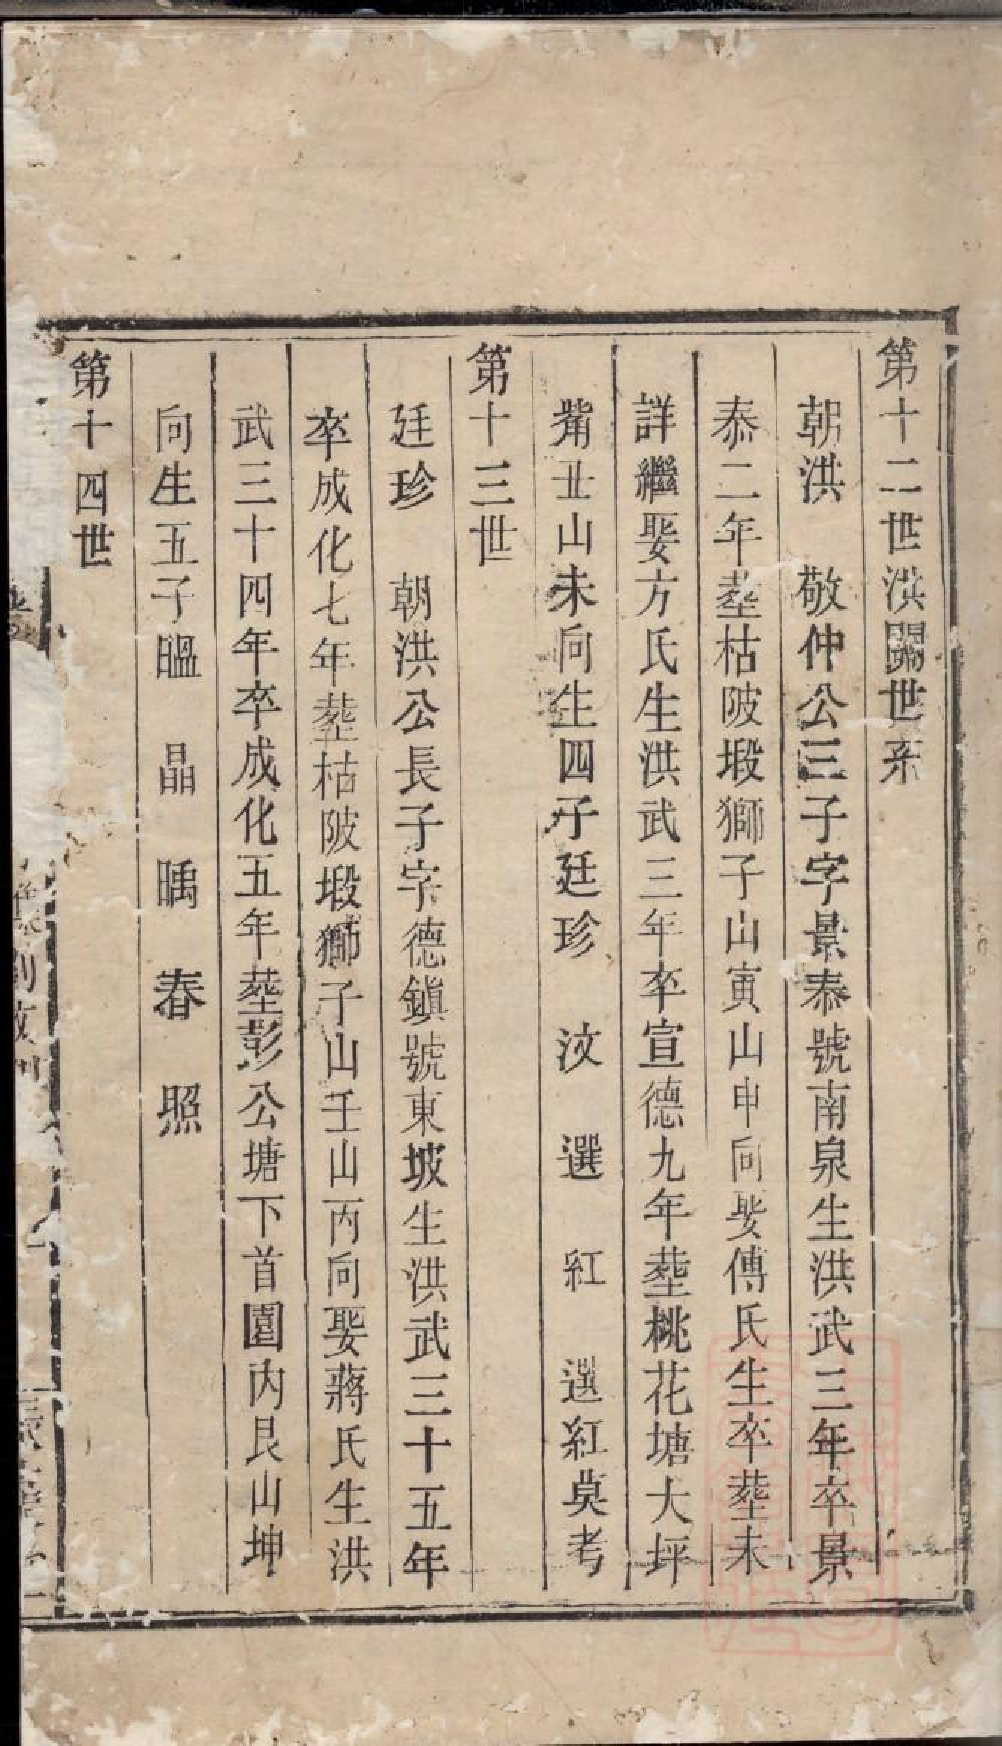 第十二世洪闢世系
朝洪　敬仲公三子字景泰號南泉生洪武三年卒景
泰二年塟枯陂塅獅子山寅山申向娶傅氏生卒塟未
詳繼娶方氏生洪武三年卒宣德九年塟桃花塘大坪
觜丑山未向生四子廷珍　汶　選　紅　選紅莫考
第十三世
廷珍　朝洪公長子字德鎮號東坡生洪武三十五年
卒成化七年塟枯陂塅獅子山壬山丙向娶蔣氏生洪
武三十四年卒成化五年塟彭公塘下首園内艮山坤
向生五子昷　晶　㬂　春　照
第十四世